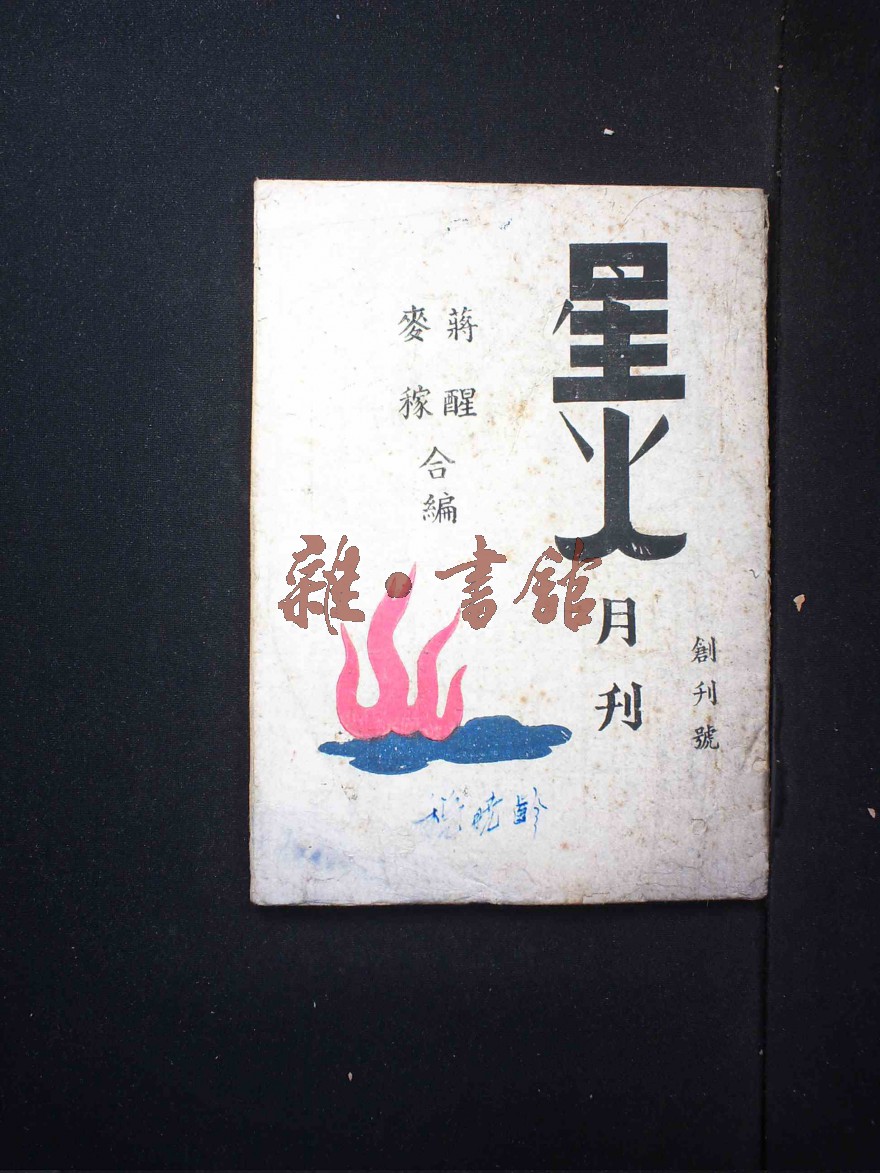 星火
月刊
創刊號
蔣醒
麥稼
合編
雜·書館
曉齡